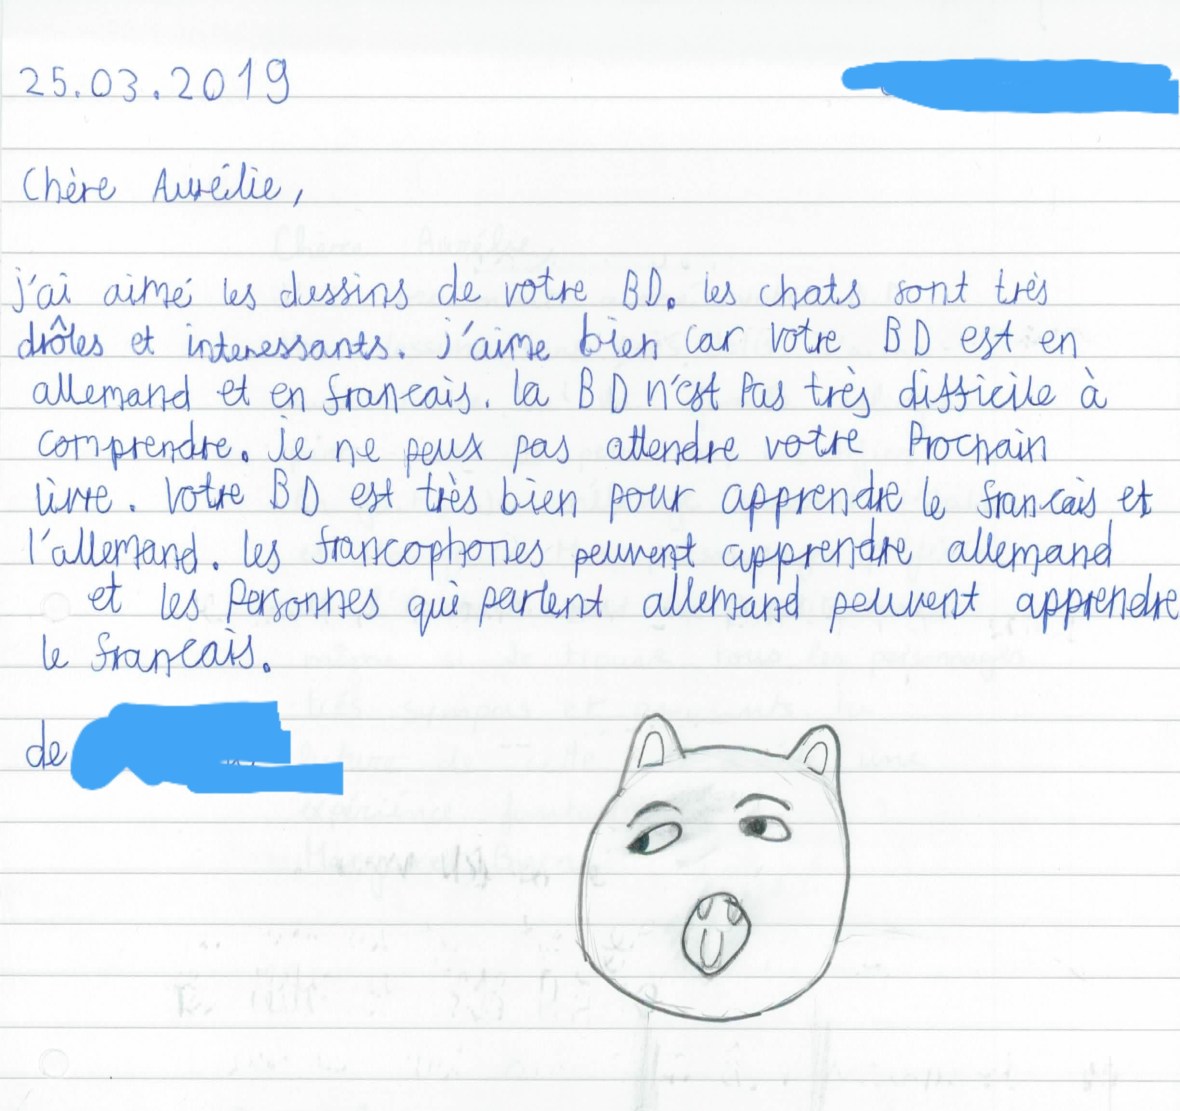 25.03.2019
Chère Aurélie,
j'ai aimé les dessins de votre BD. les chats sont très
drôles et interessants. j'aime bien car votre BD est en
allemand et en francais. la BD n'est Pas très difficile à
comprendre. je ne peux pas attendre votre Prochain
livre. Votre BD est très bien pour apprendre le francais et
l'allemand. les francophones peuvent apprendre allemand
et les Personnes qui parlent allemand peuvent apprendre
le français.
de